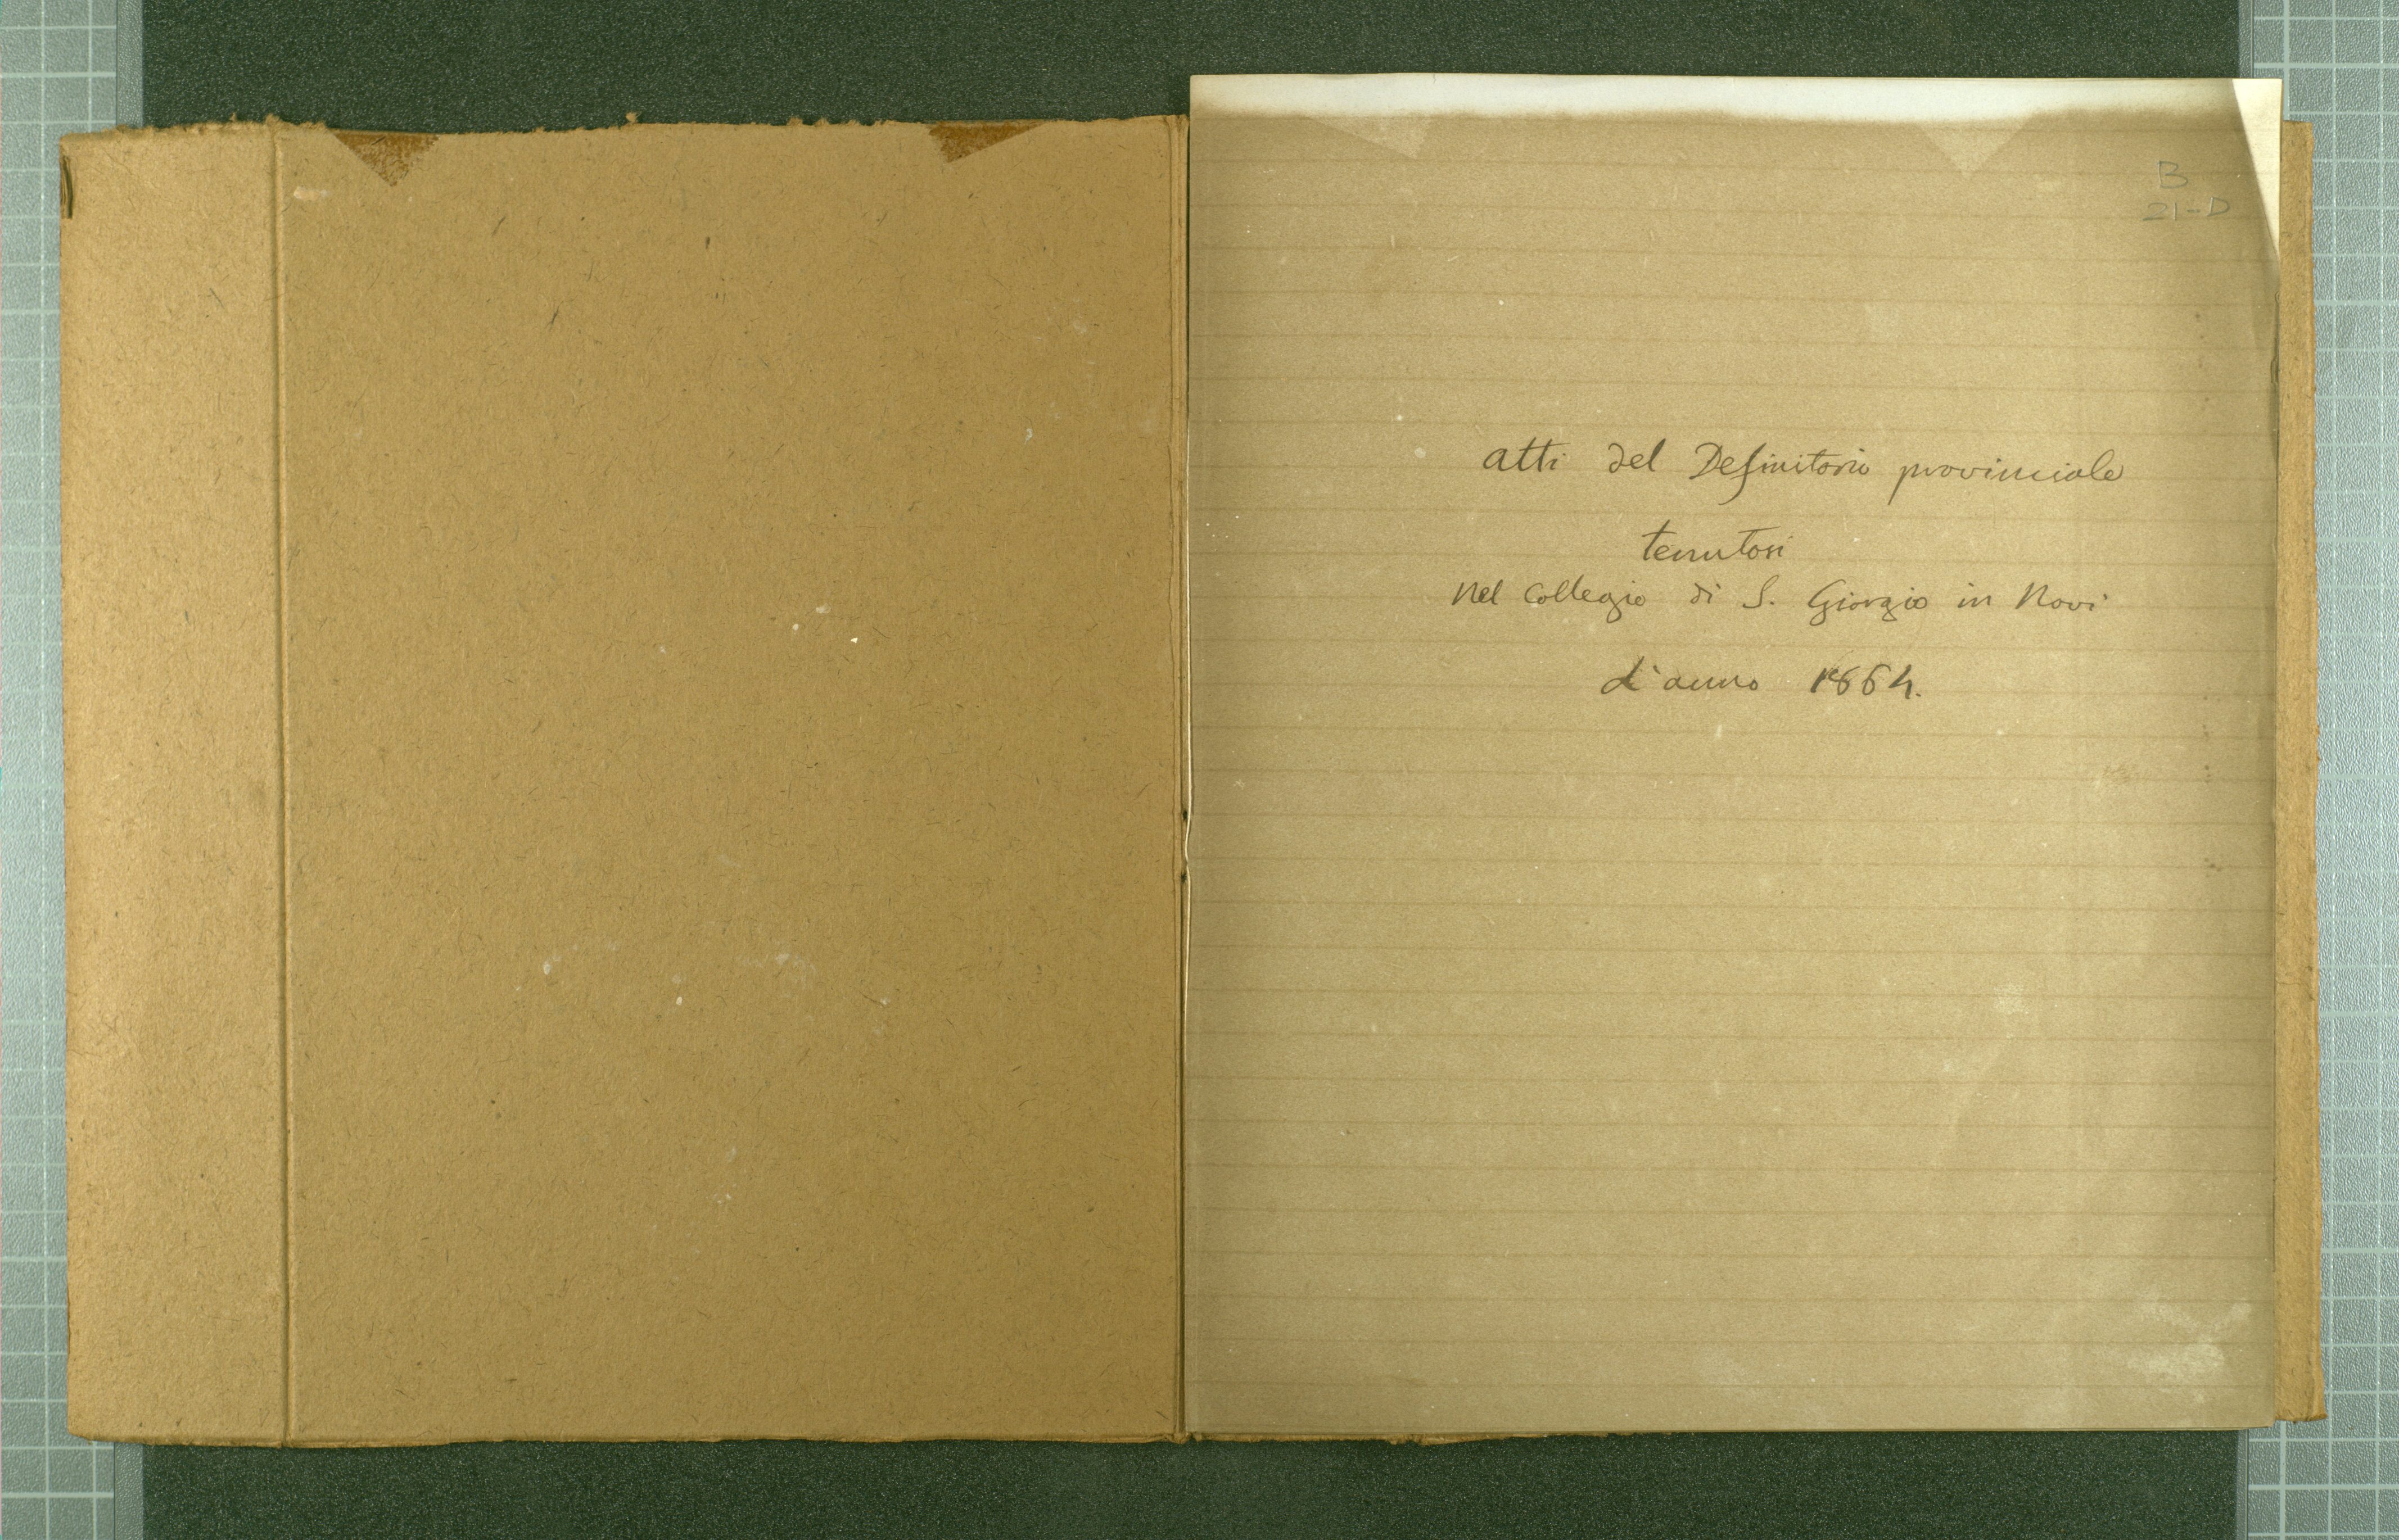 B
21-D
atti del Definitorio provinciale
tenutosi
nel Collegio di S. Giorgio in Novi
l'anno 1864.